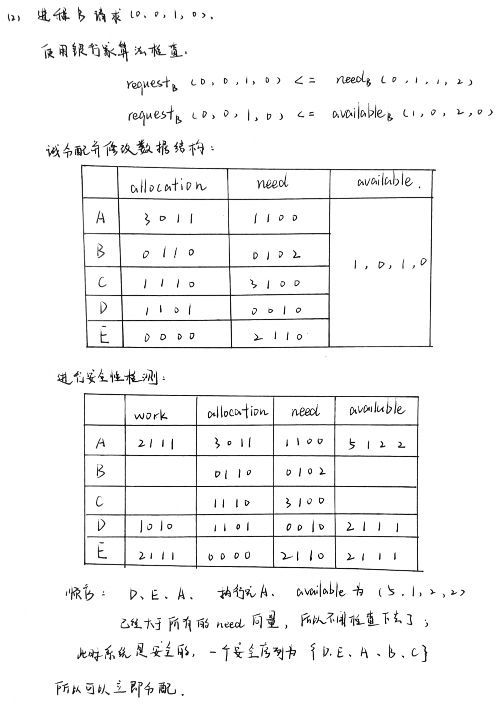 (2) 进程B请求(0,0,1,0).
使用银行家算法检查.
request_B (0,0,1,0) <= need_B (0,1,1,2)
request_B (0,0,1,0) <= available_B (1,0,2,0)
试分配并修改数据结构:
allocation need available.
A 3 0 1 1 1 1 0 0
B 0 1 1 0 0 1 0 2 1,0,1,0
C 1 1 1 0 3 1 0 0
D 1 1 0 1 0 0 1 0
E 0 0 0 0 2 1 1 0
进行安全性检测:
work allocation need available
A 2 1 1 1 3 0 1 1 1 1 0 0 5 1 2 2
B 0 1 1 0 0 1 0 2
C 1 1 1 0 3 1 0 0
D 1 0 1 0 1 1 0 1 0 0 1 0 2 1 1 1
E 2 1 1 1 0 0 0 0 2 1 1 0 2 1 1 1
顺序: D、E、A. 执行完A. available 为 (5,1,2,2)
已经大于所有的need向量, 所以不用检查下去了;
此时系统是安全的, 一个安全序列为 {D.E、A、B、C}
所以可以立即分配.